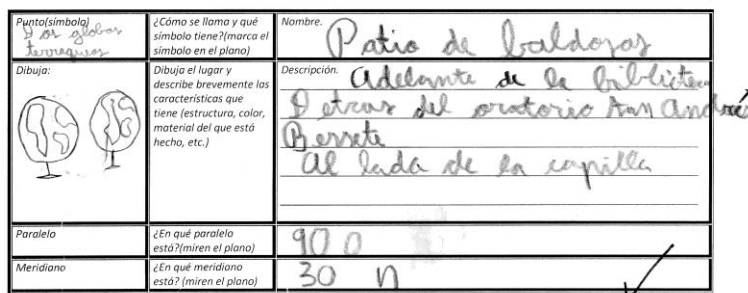 Punto(símbolo)
Dos globos
terraqueos
¿Cómo se llama y qué
símbolo tiene?(marca el
símbolo en el plano)
Nombre.
Patio de baldosas
Dibuja:
Dibuja el lugar y
describe brevemente las
características que
tiene (estructura, color,
material del que está
hecho, etc.)
Descripción.
Adelante de la biblioteca
Detras del oratorio San André
Bersete
Al lada de la capilla
Paralelo
¿En qué paralelo
está?(miren el plano)
90 O
Meridiano
¿En qué meridiano
está? (miren el plano)
30 N